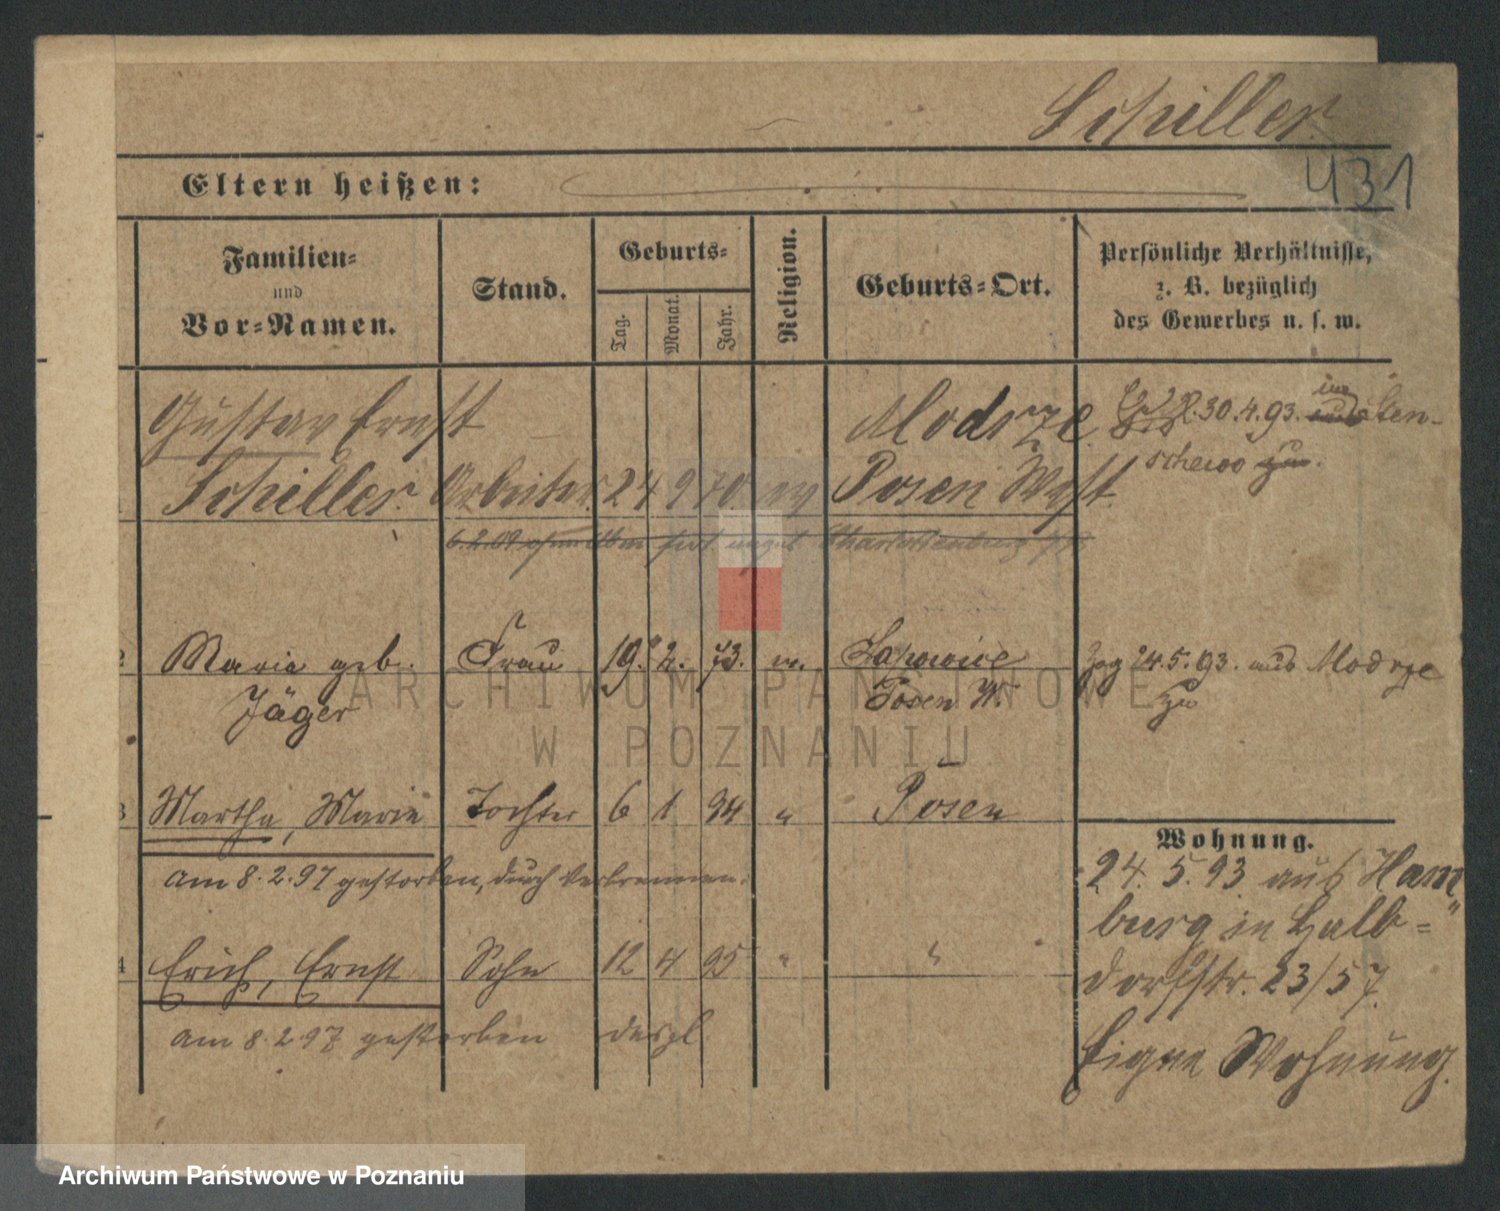 Schiller
431
Eltern heißen:
Familien-
und
Vor-Namen.
Stand.
Geburts-
Tag.
Monat.
Jahr.
Religion.
Geburts-Ort.
Persönliche Verhältnisse,
z. B. bezüglich
des Gewerbes u. s. w.
Gustav Ernst
Schiller. Arbeiter 24 9 70 ev
Modrze
Posen West
30.4.93. in
schewo
6.2.09 Charlottenburg
2 Maria geb. Frau 19. 2. 73.
Jäger
Posen W.
Zzg 24.5.93. aus Modrze
zu
3 Martha, Marie Tochter 6 1 94 " Posen
am 8.2.97 gestorben, durch Verbrennen.
4 Erich, Ernst Sohn 12 4 95 " "
am 8.2.97 gestorben desgl
Wohnung.
24.5.93 aus Ham
burg in Halb=
dorfstr. 23/57.
Eigne Wohnung.
ARCHIWUM PAŃSTWOWE
W POZNANIU
Archiwum Państwowe w Poznaniu